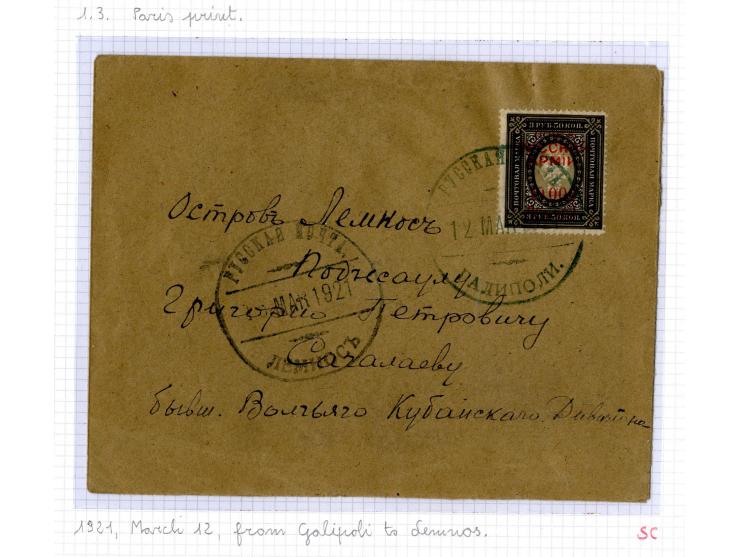 1.3. Paris print.
3 РУБ. 50 КОП.
ПОЧТОВАЯ МАРКА
ПОЧТОВАЯ МАРКА
3 РУБ. 50 КОП.
РУССКАЯ
12 МАР
ГАЛИПОЛИ.
Островъ Лемносъ
РУССКАЯ ПОЧТА.
МАР 1921
ЛЕМНОСЪ
Подъесаулу
Григорію Петровичу
Сачалаеву
бывш. Волчьяго Кубанскаго Дивизіона
1921, March 12, from Galipoli to Lemnos.
SC